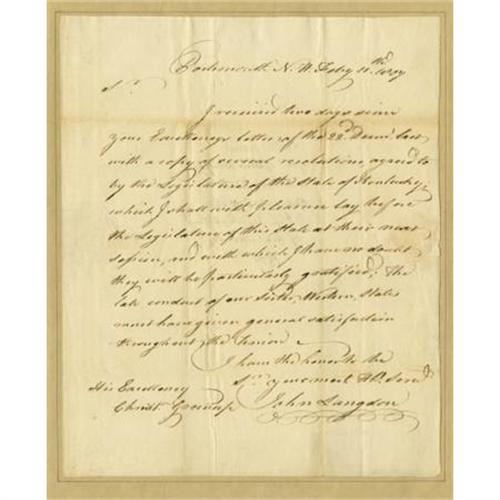 Portsmouth N. H. Feby 11th 1807
Sr.
I received two days since
your Excellency's letter of the 22d. Decemr. last
with a copy of several resolutions agreed to
by the Legislature of the State of Kentucky,
which I shall with pleasure lay before
the Legislature of this State at their next
session, and with which I have no doubt
they will be particularly gratified; The
late conduct of our Sister Western States
must have given general satisfaction
throughout the Union
I have the honor to be
Sr. your most Ob. Servt.
John Langdon
His Excellency
Christr. Greenup